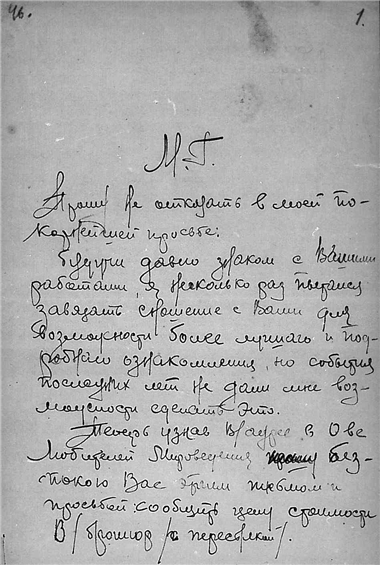 46.
1.
М. Г.
Прошу не отказать в моей по-
корнейшей просьбе:
Будучи давно знаком с Вашими
работами, я несколько раз пытался
завязать сношение с Вами для
возможности более лучшаго и под-
робнаго ознакомления, но события
последних лет не дали мне воз-
можности сделать это.
Теперь узнав в О-ве
Любителей Мироведения прошу без-
покою Вас этим письмом и
просьбой: сообщить цену стоимости
В/брошюр /с пересылкой/.